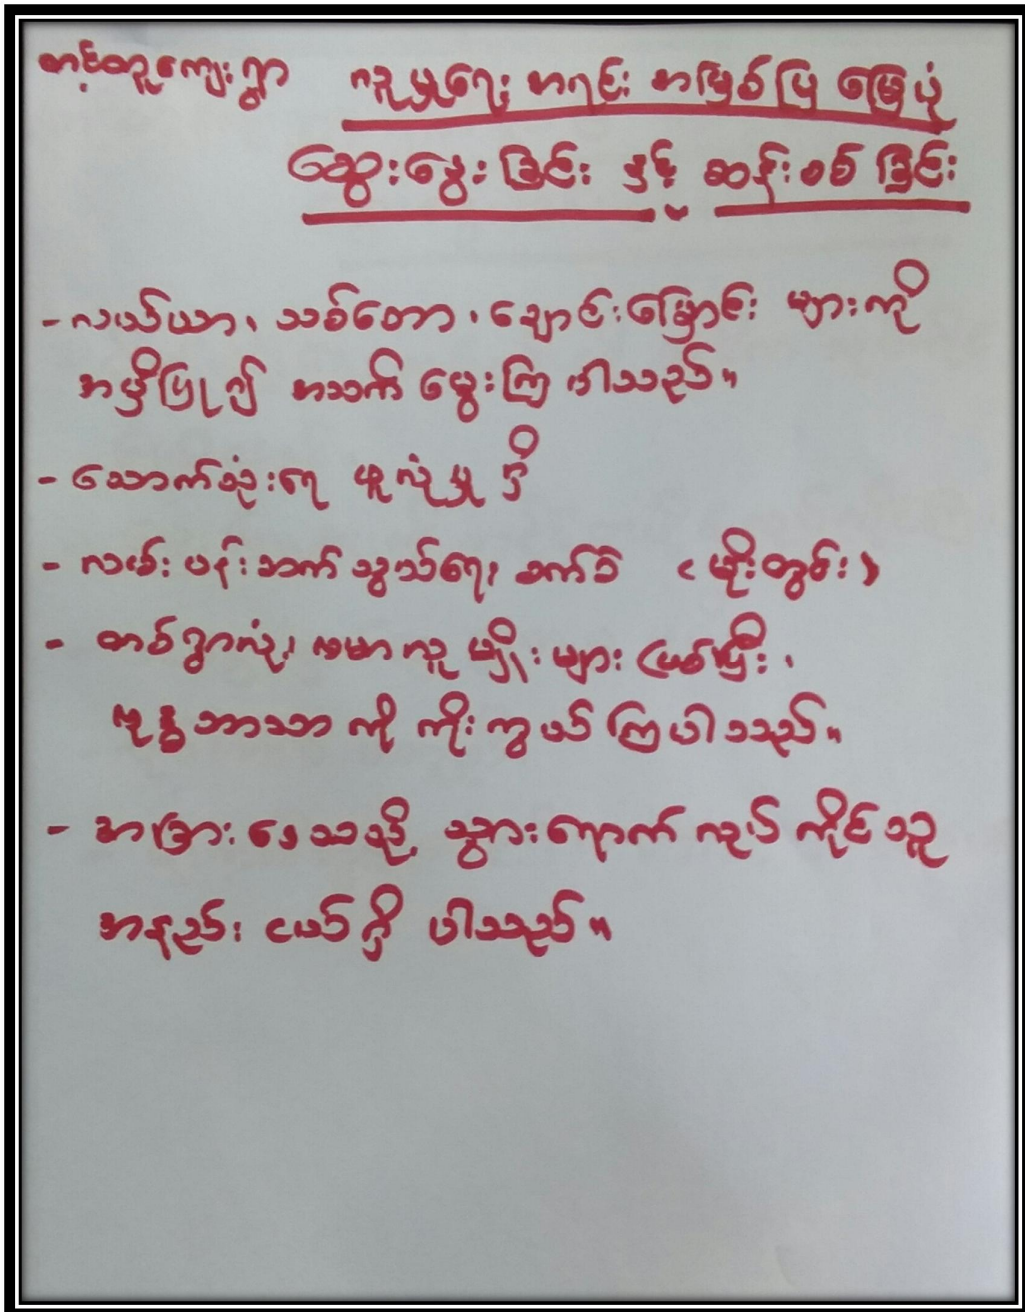 တင့်တူကျေးရွာ လူမှုရေး အရင်း အမြစ်ပြ မြေပုံ
ဆွေးနွေးခြင်း နှင့် ဆန်းစစ်ခြင်း
- လယ်ယာ၊ သစ်တော၊ ချောင်းမြောင်း များကို
အမှီပြု၍ အသက် မွေးကြ ပါသည်။
- သောက်သုံးရေ ဖူလုံမှု ရှိ
- လမ်း ပန်းဆက်သွယ်ရေး ခက်ခဲ (မိုးတွင်း)
- တစ်ရွာလုံး ဗမာလူမျိုးများ ဖြစ်ပြီး၊
ဗုဒ္ဓဘာသာ ကို ကိုးကွယ် ကြပါသည်။
- အခြား ဒေသသို့ သွားရောက် လုပ် ကိုင်သူ
အနည်း ငယ်ရှိ ပါသည်။